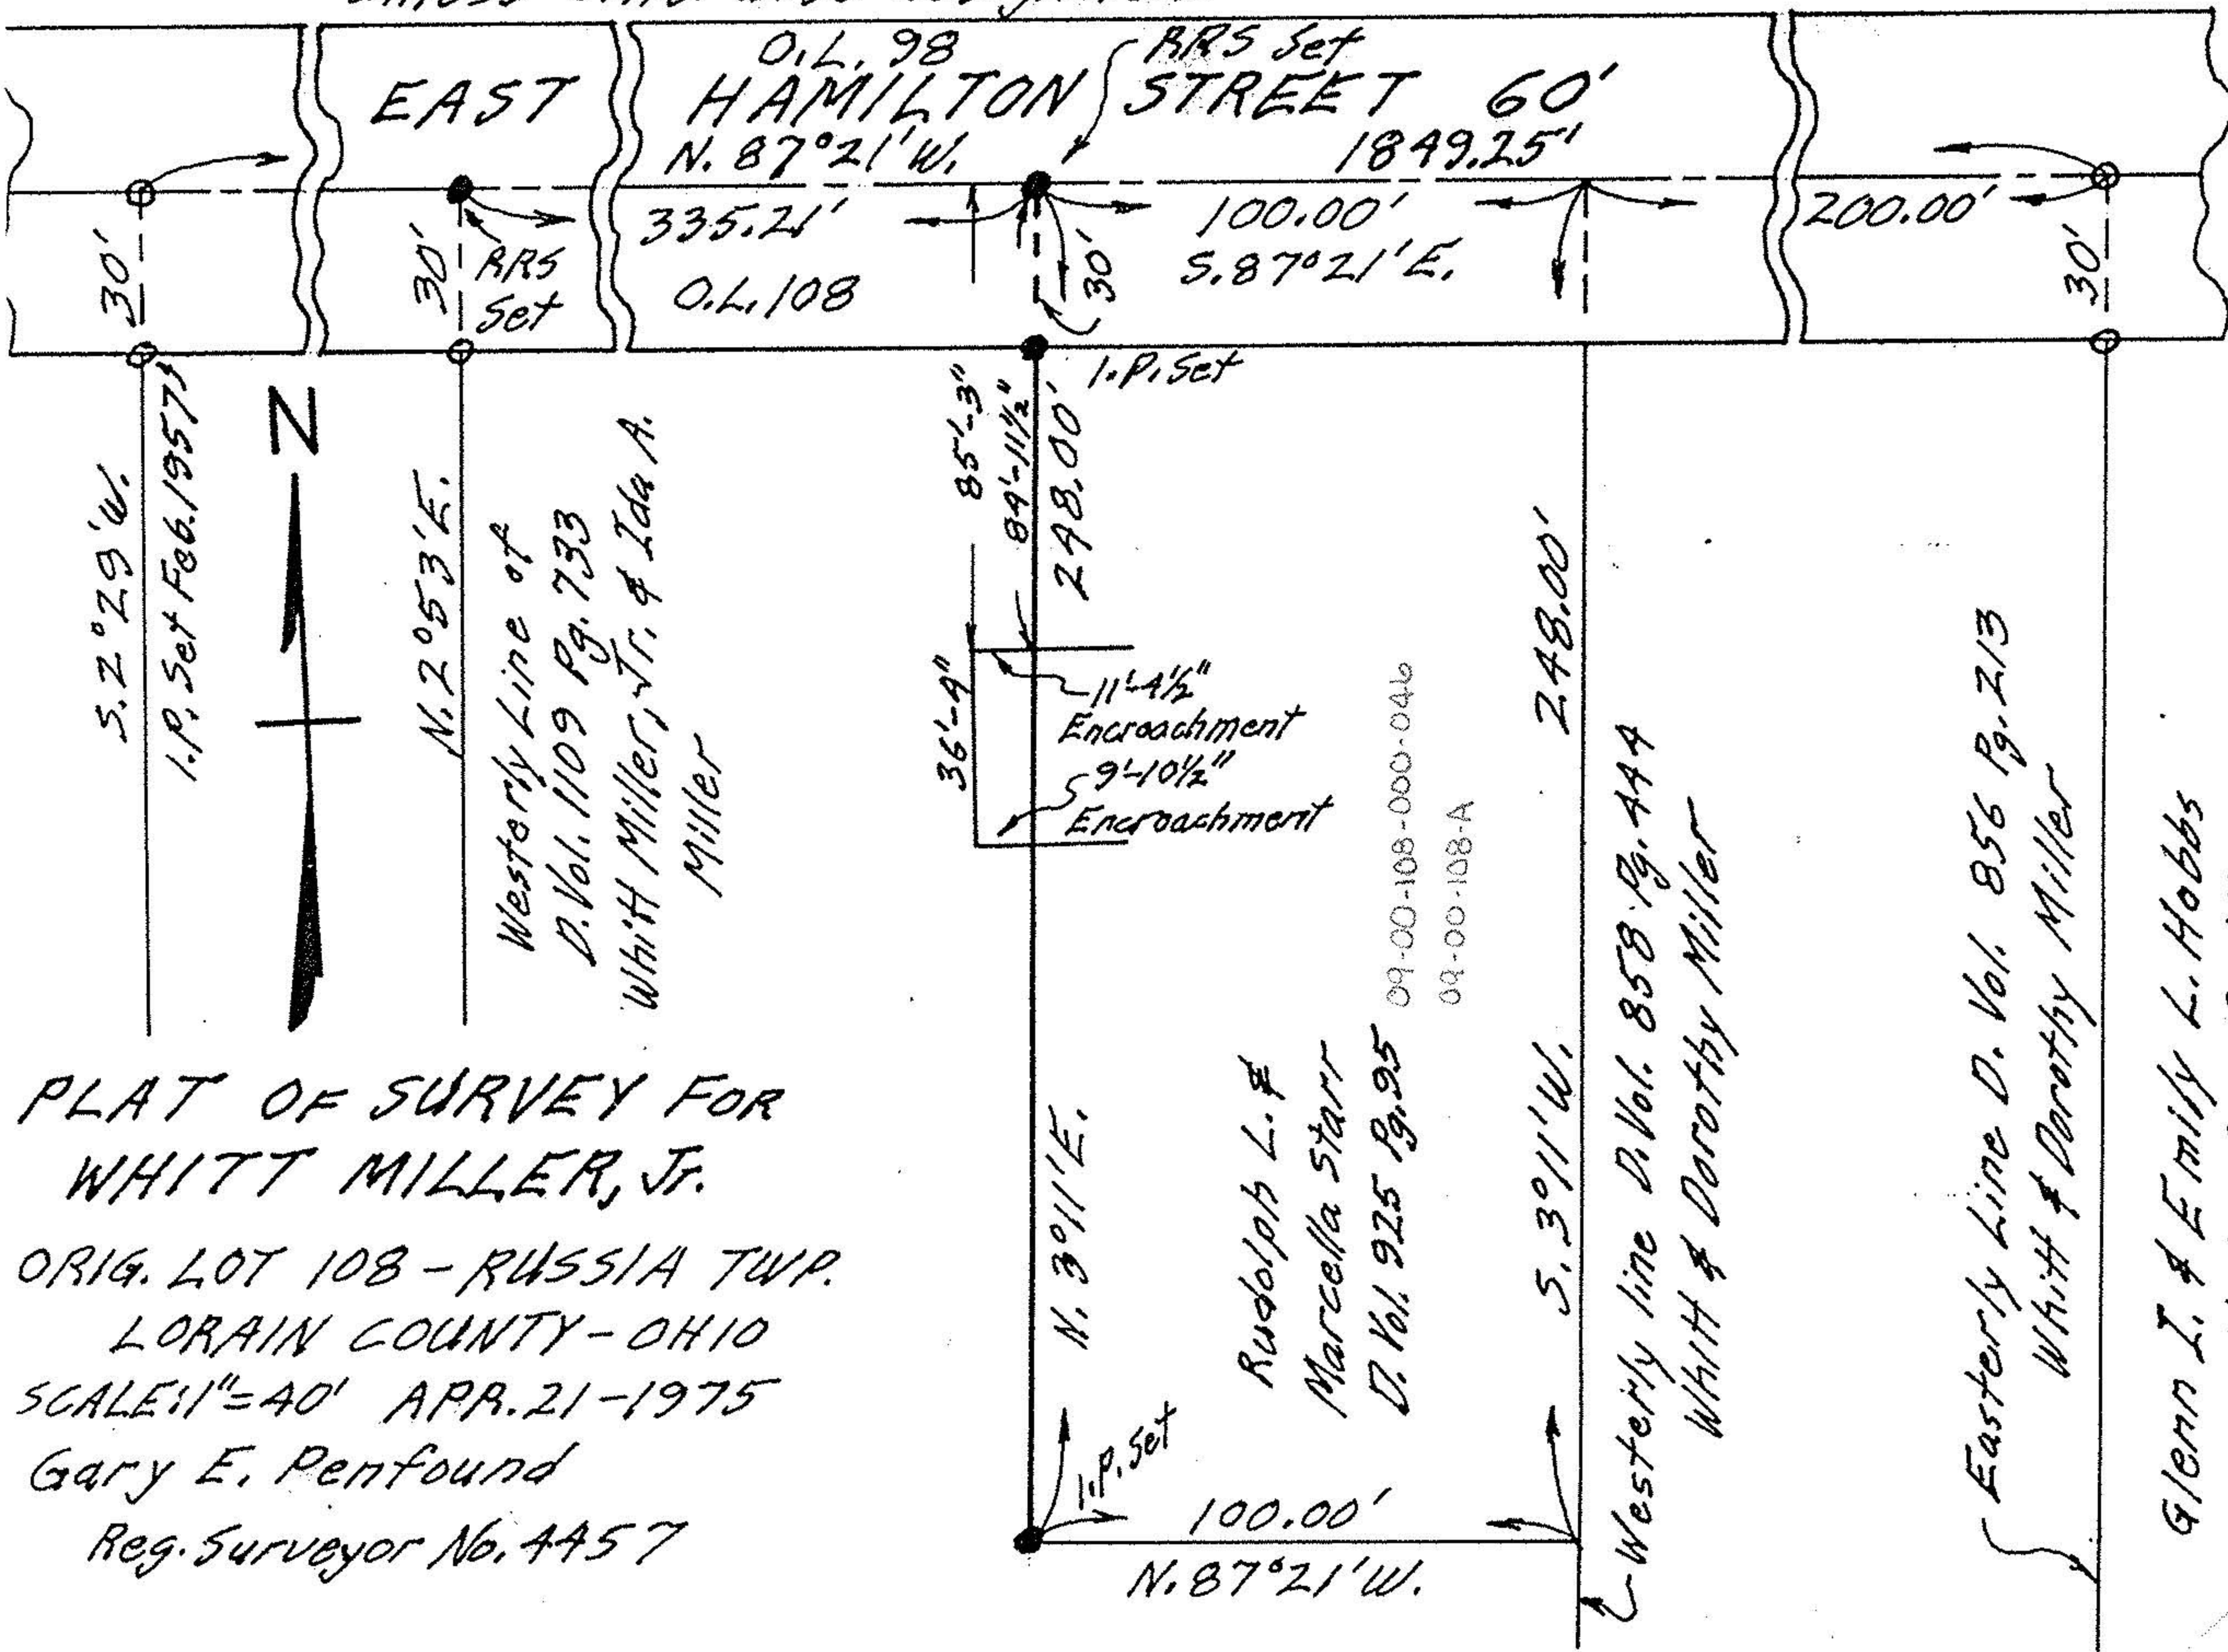 O.L. 98
RRS Set
EAST HAMILTON STREET 60'
N. 87°21'W.
1849.25'
335.21'
100.00'
200.00'
S. 87°21'E.
30'
30'
RRS
Set
O.L. 108
30'
30'
I.P. Set
S. 2°29'W.
I.P. Set Feb. 1957
N
N. 2°53'E.
Westerly Line of
D. Vol. 1109 Pg. 733
Whitt Miller, Jr. & Ida A.
Miller
85'-3"
84'-11½"
248.00'
36'-4"
11'-4½"
Encroachment
9'-10½"
Encroachment
09-00-108-000-046
09-00-108-A
248.00'
N. 3°11'E.
Rudolph L. &
Marcella Starr
D. Vol. 925 Pg. 95
S. 3°11'W.
Westerly line D. Vol. 858 Pg. 444
Whitt & Dorothy Miller
Easterly Line D. Vol. 856 Pg. 213
Whitt & Dorothy Miller
Glenn I. & Emily L. Hobbs
I.P. Set
100.00'
N. 87°21'W.
PLAT OF SURVEY FOR
WHITT MILLER, Jr.
ORIG. LOT 108 - RUSSIA TWP.
LORAIN COUNTY - OHIO
SCALE: 1"=40' APR. 21-1975
Gary E. Penfound
Reg. Surveyor No. 4457